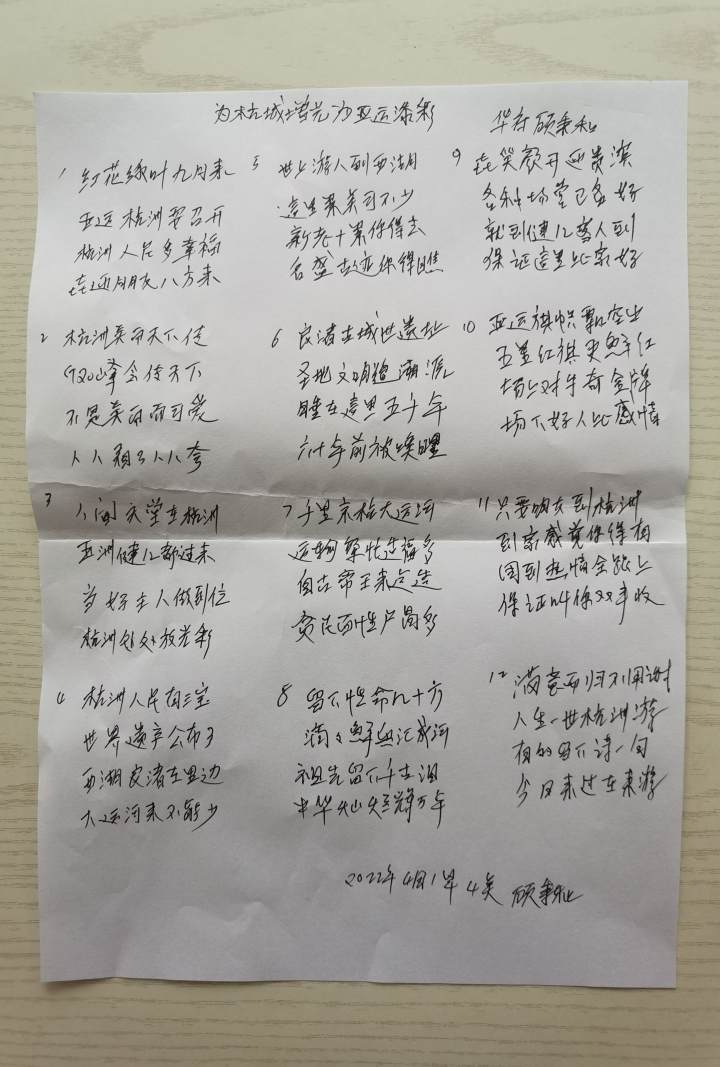 为杭城增光为亚运添彩
华存 顾秉和
1 红花绿叶九月来
亚运杭洲要召开
杭洲人民多幸福
喜迎朋友八方来
2 杭洲美丽天下传
G20峰会传天下
不是美丽而可觉
人人翘3人人夸
3 人间天堂在杭洲
亚洲健儿都过来
当好主人做到位
杭洲处处放光彩
4 杭洲人民有三宝
世界遗产公布了
西湖良渚在里边
大运河来不能少
5 世上游人到西湖
这里景美可不少
新老十景你得去
名盛古迹你得瞧
6 良渚古城世遗址
圣地文明追潮流
睡在这里五千年
六十年前被唤醒
7 千里京杭大运河
运物繁忙造福多
自古帝王来点造
贫民百性尸骨多
8 留下性命几十万
滴滴鲜血汇成河
祖先留下千古泪
中华灿烂辉万年
9 喜笑颜开迎贵滨
各种场堂已备好
就到健儿客人到
保证这里比家好
10 亚运旗帜飘空中
五星红旗更鲜红
场上对手夺金牌
场下好人比感情
11 只要朋友到杭洲
到家感觉你得有
周到热情全跟上
保证叫你双丰收
12 满意而归不用谢
人生一世杭洲游
有的留下诗一句
今日来过在来游
2022年4月1号 4关 顾秉和